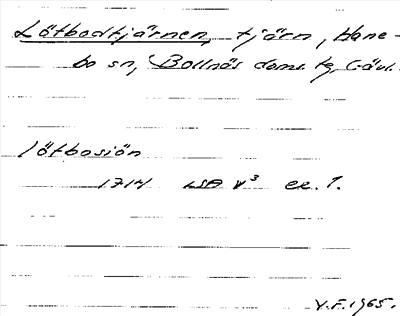 Lötbodtjärnen, tjärn, Hane-
bo sn, Bollnäs doms. tg, Gävl.
lötbosiön
1714 LSA V³ ex. 1.
V.F. 1965.